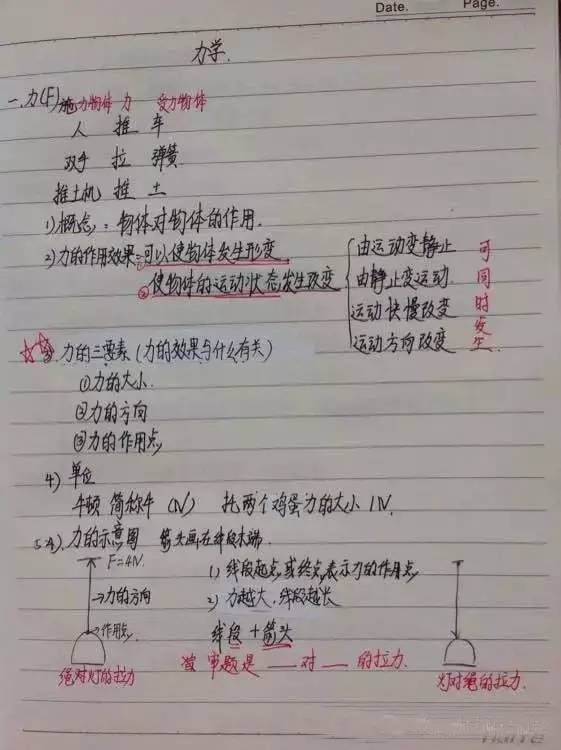 Date. Page.
力学.
一.力(F) 施力物体 力 受力物体
人 推 车
双手 拉 弹簧
推土机 推 土
1)概念:物体对物体的作用.
2)力的作用效果:①可以使物体发生形变
②使物体的运动状态发生改变
由运动变静止
由静止变运动.
运动快慢改变
运动方向改变
可同时发生.
☆☆3)力的三要素(力的效果与什么有关)
①力的大小.
②力的方向
③力的作用点
4) 单位
牛顿 简称牛 (N) 托两个鸡蛋力的大小 1N.
5☆)力的示意图 箭头画在线段末端.
F=4N.
→力的方向
作用点
绳对灯的拉力
1) 线段起点或终点表示力的作用点
2) 力越大,线段越长
线段+箭头
审题是 __ 对 __ 的拉力.
灯对绳的拉力.